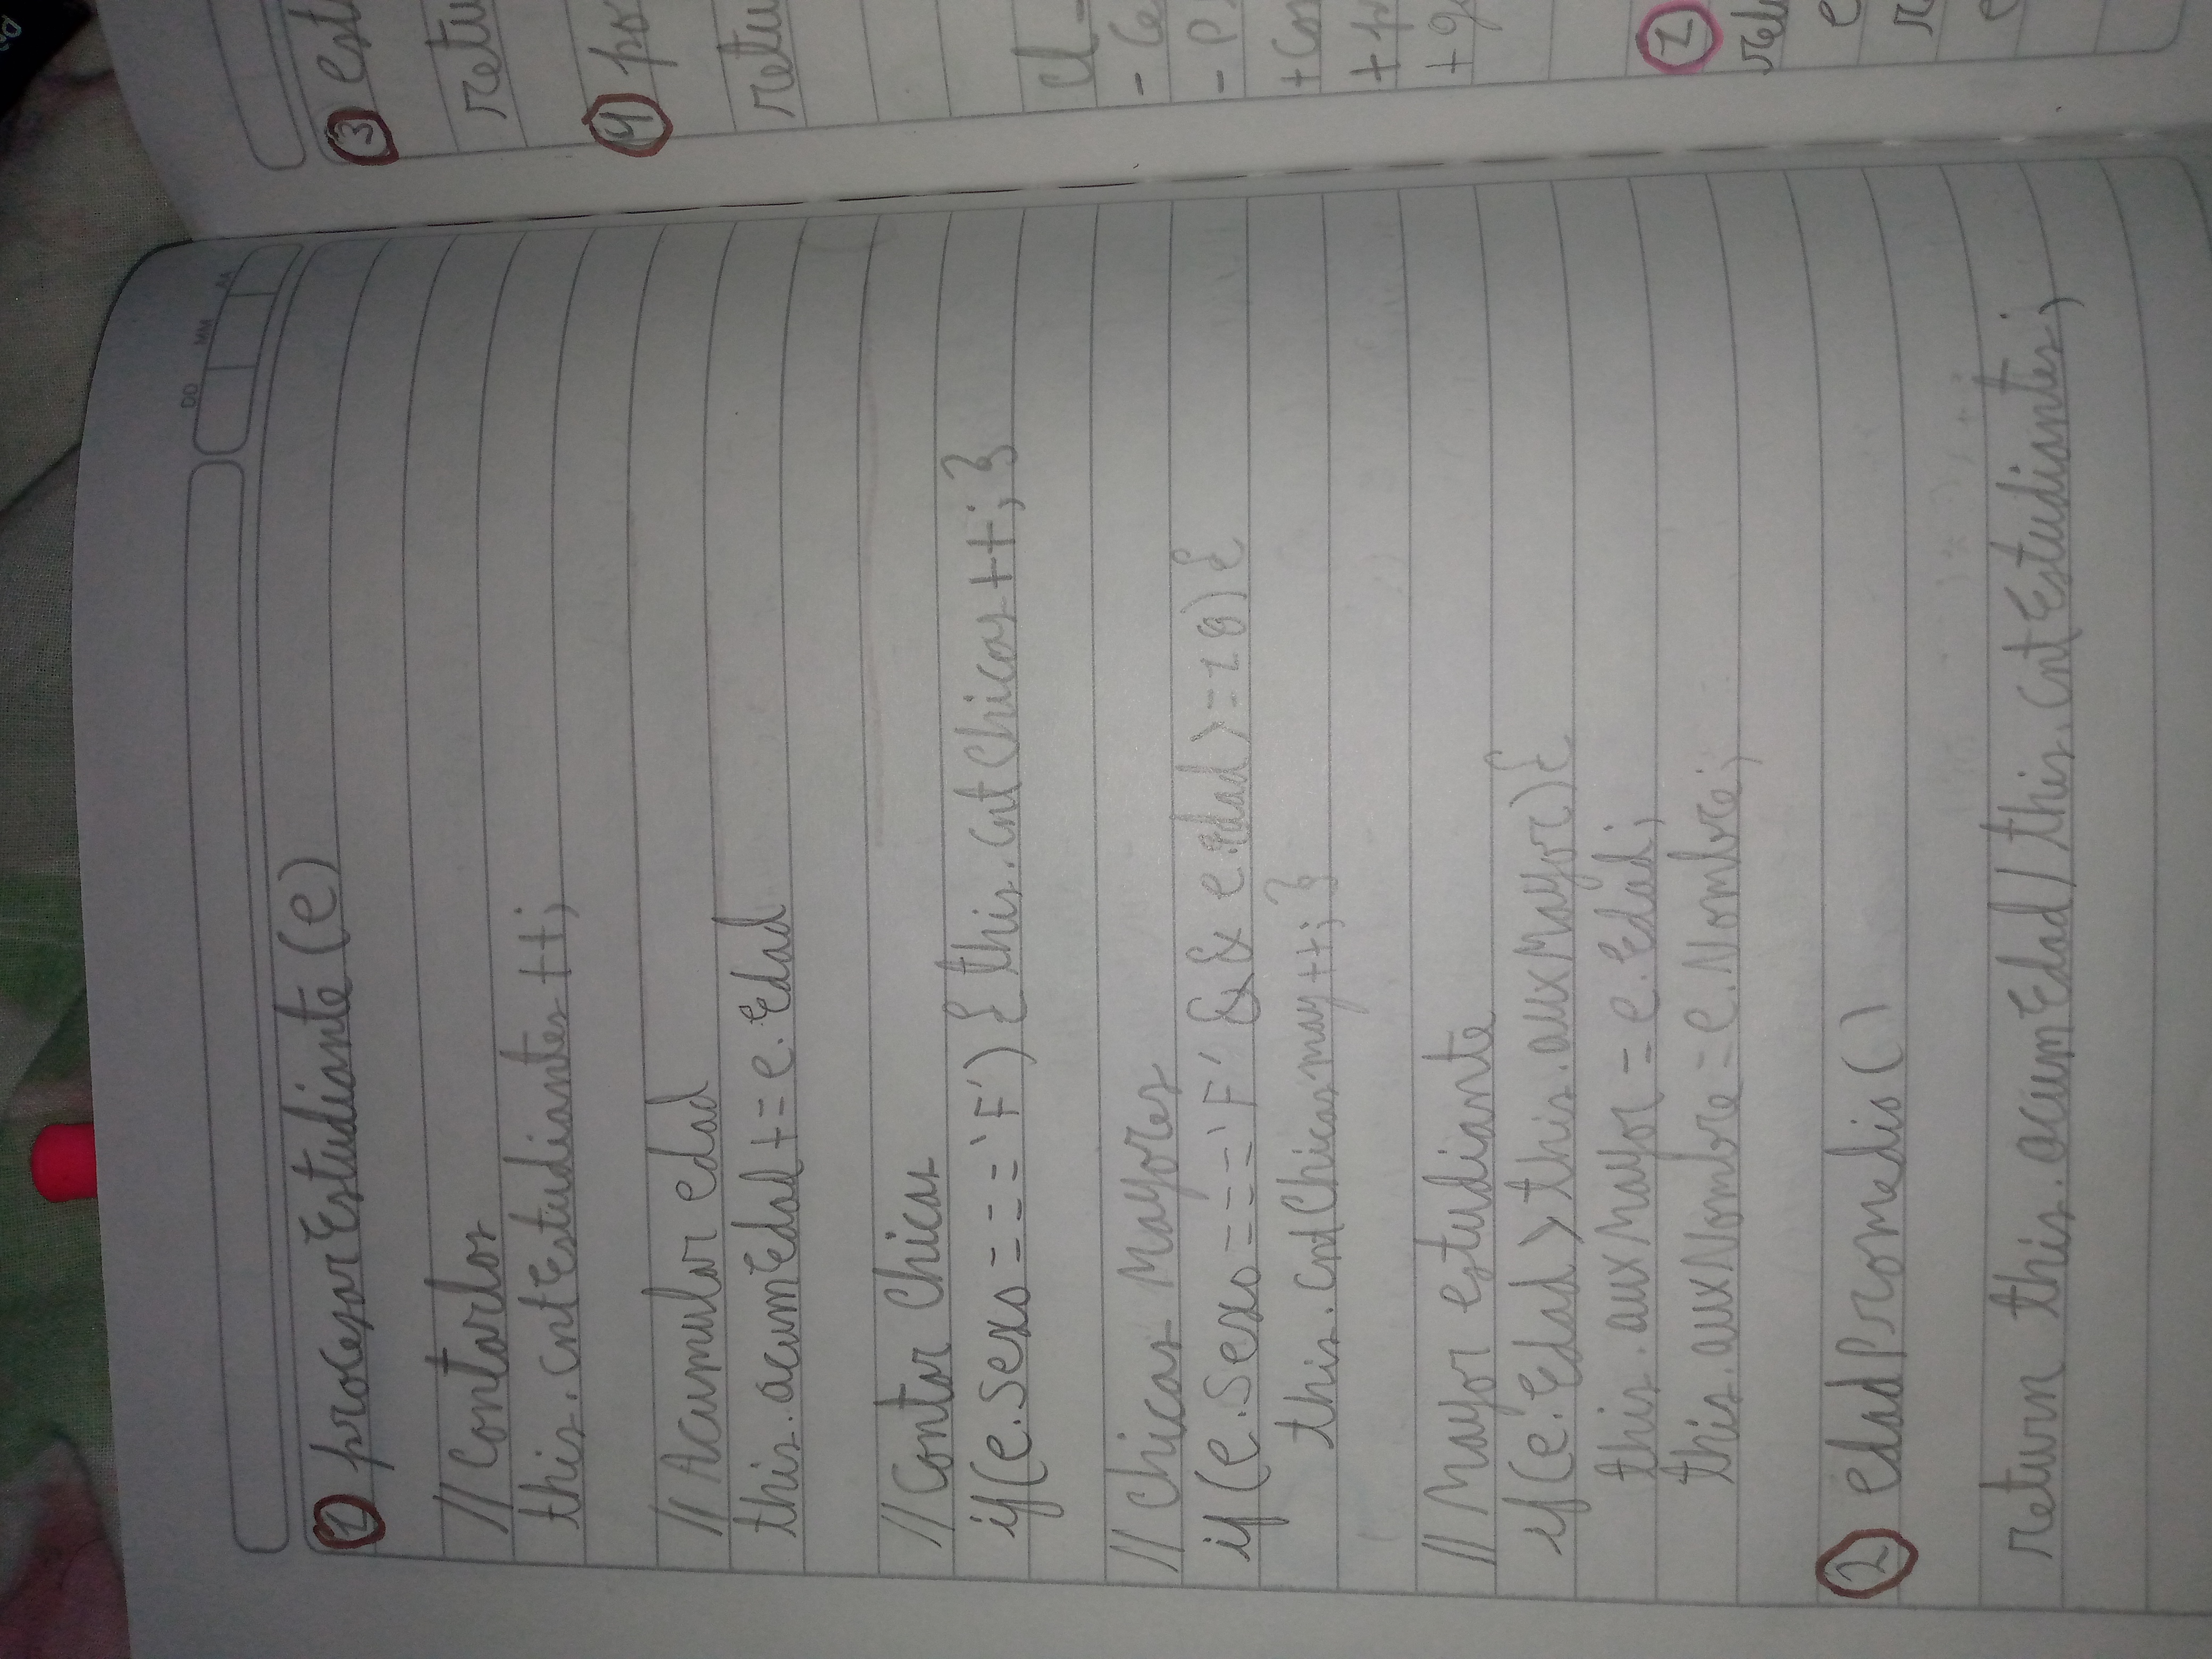 DD MM AA
1 procesarEstudiante(e)
// Contarlos
this.cntEstudiantes++;
// Acumular edad
this.acumEdad += e.Edad
// Contar Chicas
if(e.Sexo === 'F') { this.cntChicas++; }
// Chicas Mayores
if(e.Sexo === 'F' && e.edad >= 18) {
this.cntChicasmay++; }
// Mayor estudiante
if(e.Edad > this.auxMayor) {
this.auxMayor = e.Edad;
this.auxNombre = e.Nombre;
2 edadPromedio()
return this.acumEdad / this.cntEstudiantes;
3 est
retu
4 po
retu
Cl-
- Ce
- P
+ Co
+ p
+ g
1
e
r
e